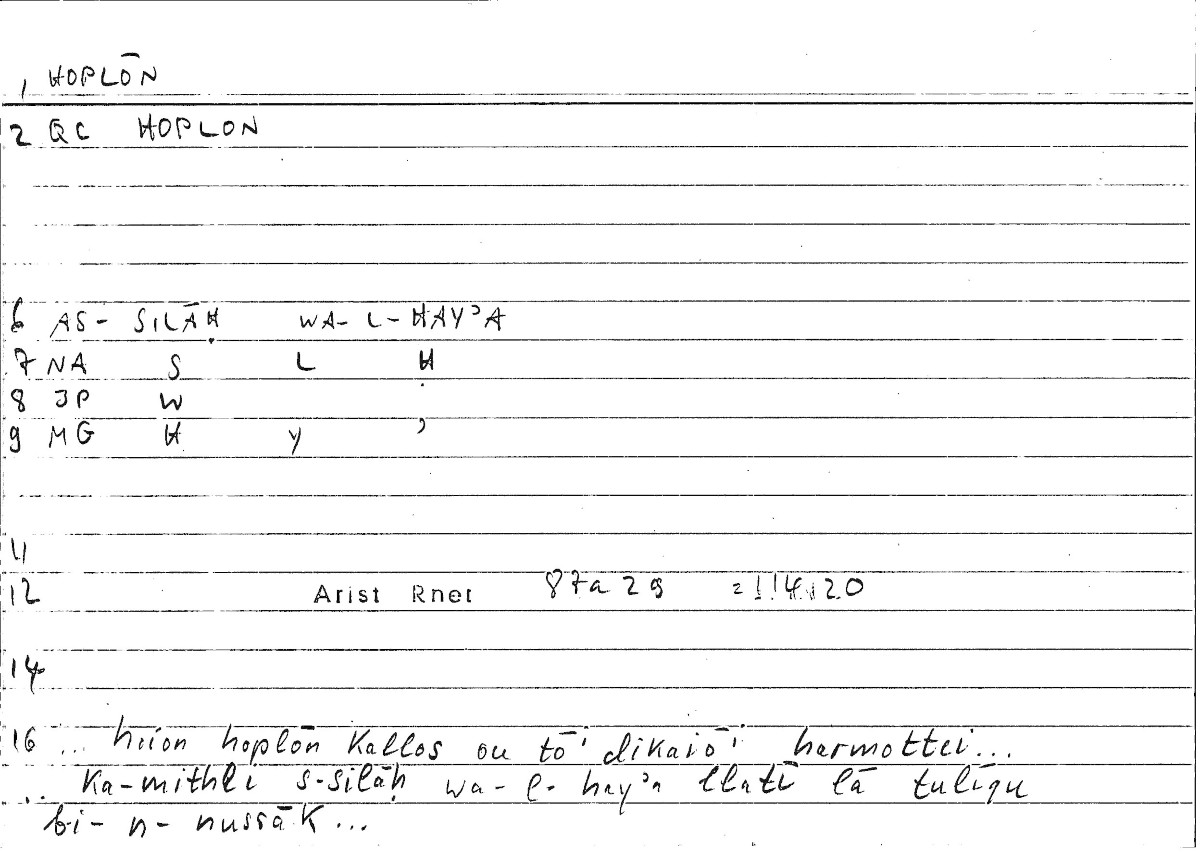 1 HOPLŌN
2 QC HOPLON
6 AS- SILĀḤ WA- L-HAYʾA
7 NA S L Ḥ
8 JP W
9 MG H Y ʾ
11
12 Arist Rhet 87a 29 =114,20
14
16 ... hoion hoplōn kallos ou tō̂i dikaiō̂i harmottei...
... ka-mithli s-silāḥ wa-l-hayʾa llatī lā tulīqu
bi-n-nussāk...